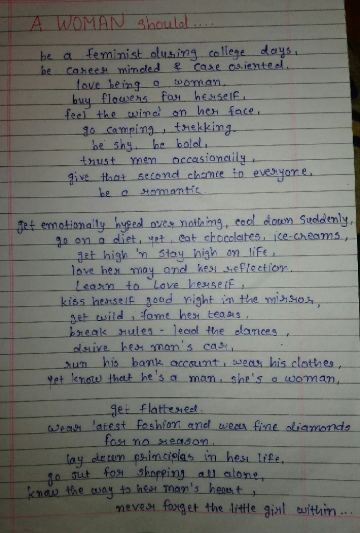 A WOMAN should....
be a feminist during college days,
be career minded & care oriented.
love being a woman.
buy flowers for herself,
feel the wind on her face,
go camping, trekking.
be shy, be bold,
trust men occasionally,
give that second chance to everyone,
be a romantic
get emotionally hyped over nothing, cool down suddenly,
go on a diet, yet, eat chocolates, ice-creams,
get high 'n stay high on life,
love her may and her reflection.
Learn to love herself,
kiss herself good night in the mirror,
get wild, tame her tears.
break rules - lead the dances,
drive her man's car,
run his bank account, wear his clothes,
yet know that he's a man, she's a woman,
get flattered.
wear latest fashion and wear fine diamonds
for no reason.
lay down principles in her life,
go out for shopping all alone,
know the way to her man's heart,
never forget the little girl within...